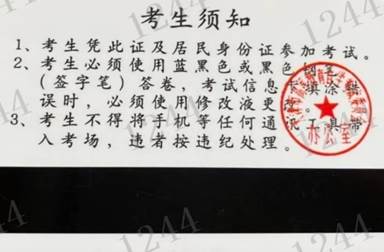 考生须知
1、考生凭此证及居民身份证参加考试。
2、考生必须使用蓝黑色或黑色
(签字笔)答卷,考试信息卡填涂错
误时,必须使用修改液更
3、考生不得将手机等任何通讯工具带
入考场,违者按违纪处理。
办公室
1244
1244
1244
1244
1244
1244